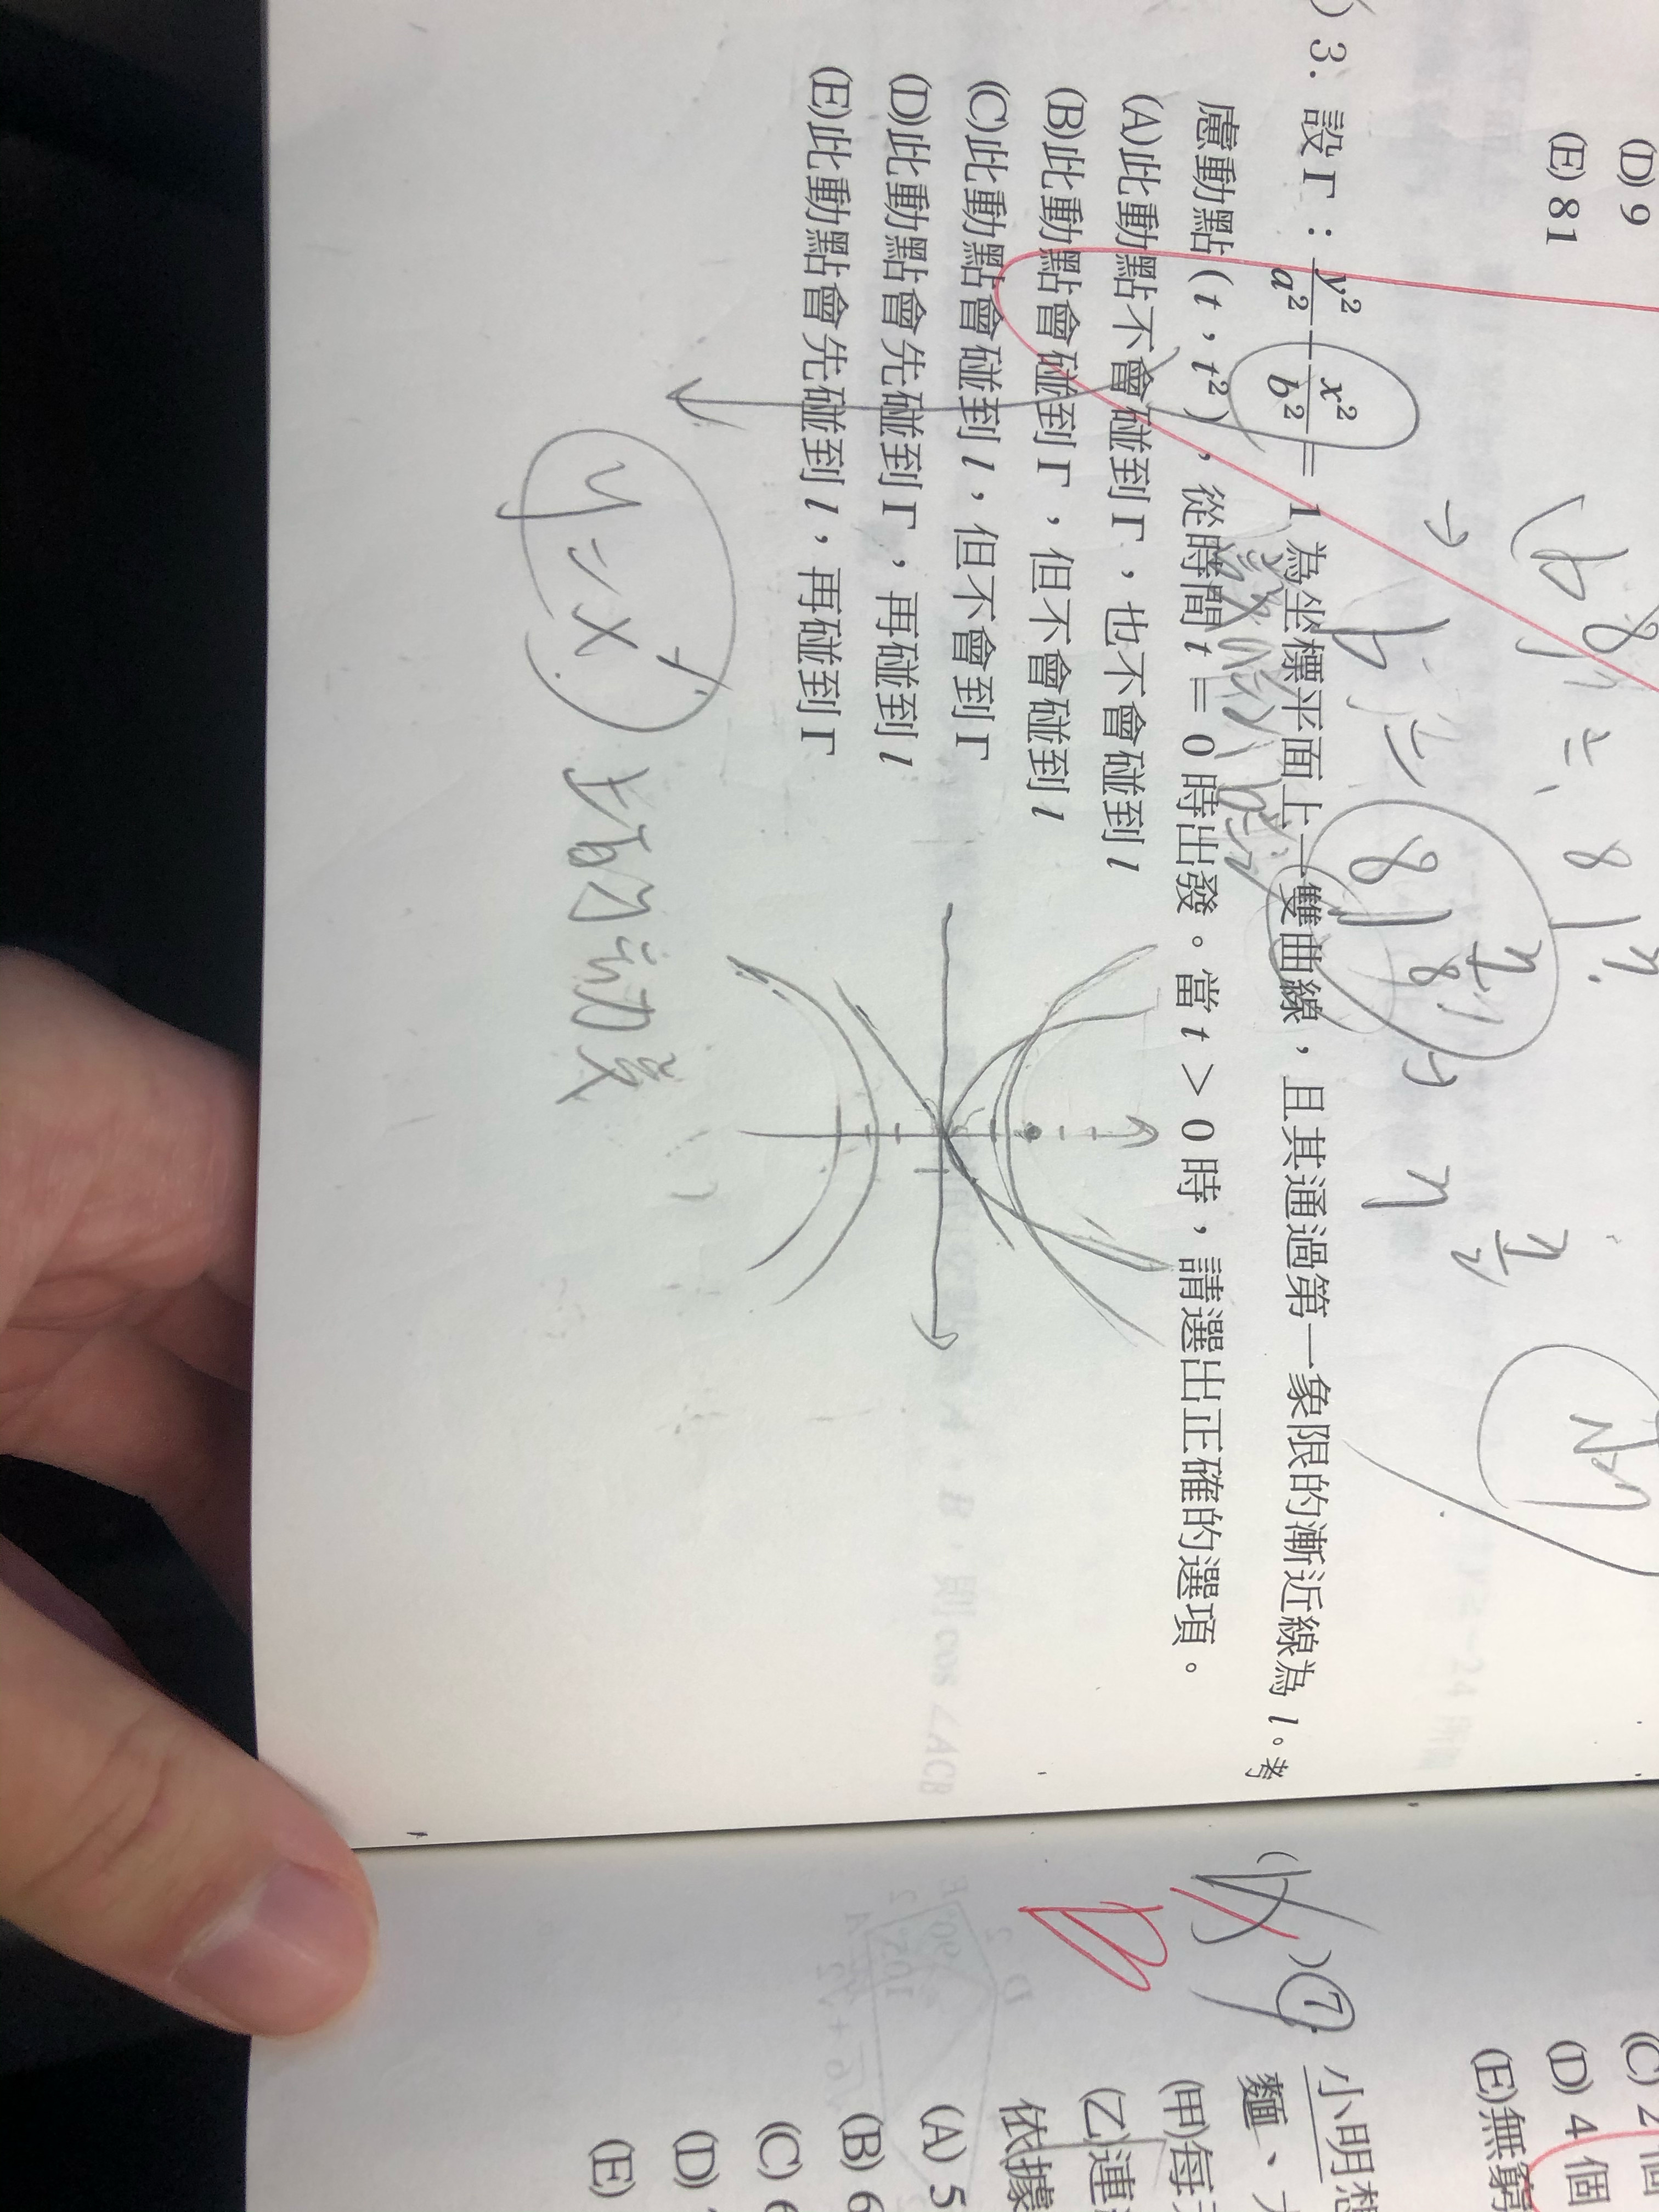 (D) 9
(E) 81
) 3. 設 Γ：y²/a² − x²/b² = 1 為坐標平面上一雙曲線，且其通過第一象限的漸近線為 l。考
慮動點 (t，t²)，從時間 t = 0 時出發。當 t > 0 時，請選出正確的選項。
(A)此動點不會碰到 Γ，也不會碰到 l
(B)此動點會碰到 Γ，但不會碰到 l
(C)此動點會碰到 l，但不會到 Γ
(D)此動點會先碰到 Γ，再碰到 l
(E)此動點會先碰到 l，再碰到 Γ
y = x²
上的动点
)⑦.
小明想
麵、
(甲)每
(乙)連
依據
(A) 5
(B) 6
(C) 6
(D)
(E)
(C) 2 個
(D) 4 個
(E)無窮